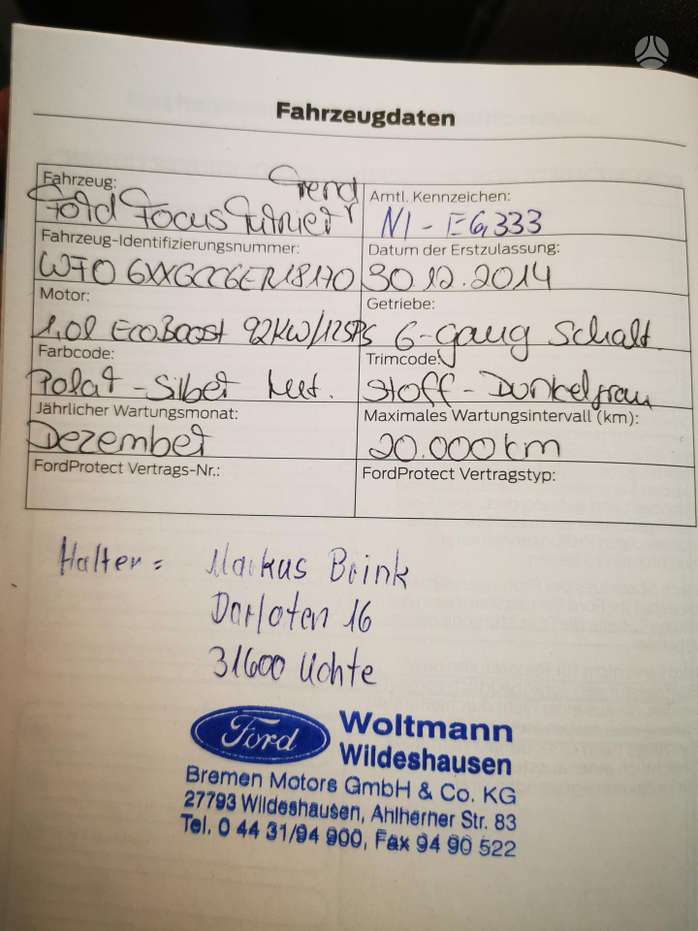 Fahrzeugdaten
Fahrzeug:
Ford Focus Turnier Trend
Amtl. Kennzeichen:
NI - EG 333
Fahrzeug-Identifizierungsnummer:
Datum der Erstzulassung:
30.12.2014
Motor:
1,0l EcoBoost 92KW/125PS
Getriebe:
6-gang Schalt.
Farbcode:
Polar-Silber Met.
Trimcode:
Stoff-Dunkelgrau
Jährlicher Wartungsmonat:
Dezember
Maximales Wartungsintervall (km):
20.000 km
FordProtect Vertrags-Nr.:
FordProtect Vertragstyp:
Halter = Markus Brink
Darlaten 16
31600 Uchte
Ford
Woltmann
Wildeshausen
Bremen Motors GmbH & Co. KG
27793 Wildeshausen, Ahlhorner Str. 83
Tel. 0 44 31/94 900, Fax 94 90 522